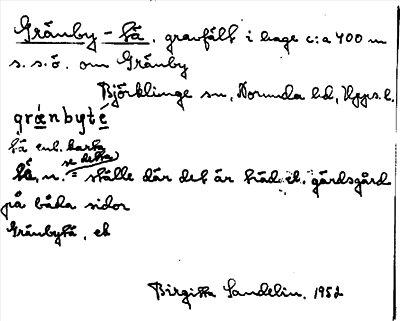 Gränby-tå, gravfält i hage c:a 400 m
s.s.ö. om Gränby
Björklinge sn, Norunda hd, Upps. l.
grǽnbyté
tå enl. karta
se detta
tå, n. = ställe där det är träd el. gärdsgård
på båda sidor
Gränbytå, ek
Birgitta Sandelin, 1952